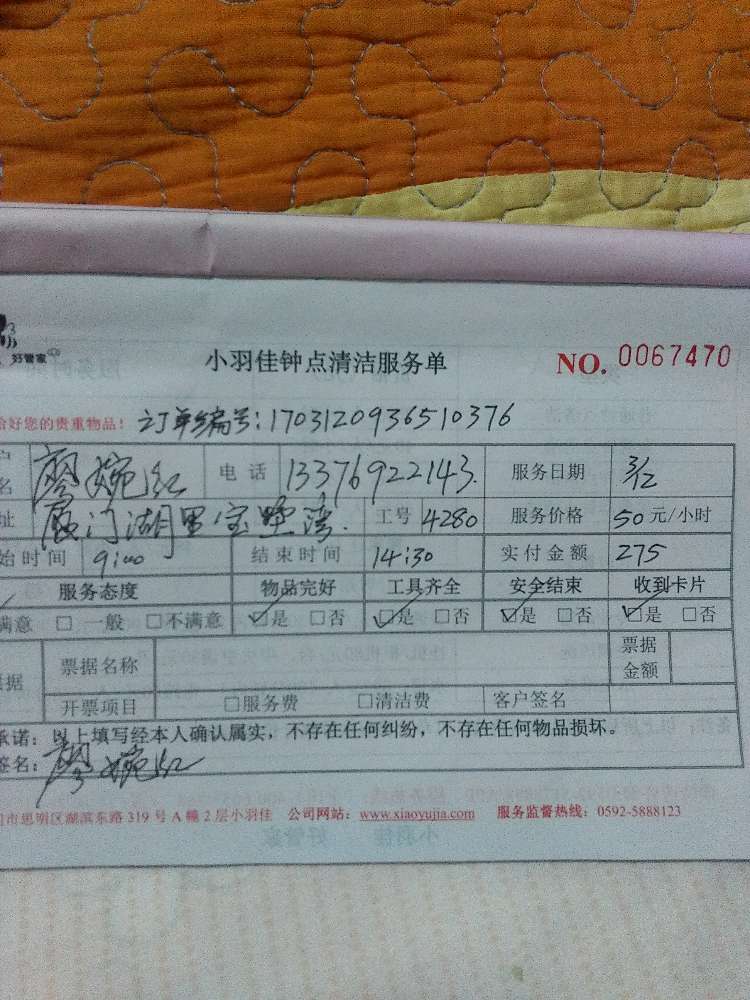 好管家
小羽佳钟点清洁服务单 NO. 0067470
您的贵重物品! 订单编号:1703120936510376
名 廖婉红 电话 13376922143. 服务日期 3/12
址 厦门湖里宝墅湾. 工号 4280 服务价格 50元/小时
始时间 9:00 结束时间 14:30 实付金额 275
服务态度 物品完好 工具齐全 安全结束 收到卡片
满意 □ 一般 □不满意 ☑是 □否 ☑是 □否 ☑是 □否 ☑是 □否
据 票据名称 票据金额
开票项目 □服务费 □清洁费 客户签名
承诺:以上填写经本人确认属实,不存在任何纠纷,不存在任何物品损坏。
签名:廖婉红
市思明区湖滨东路 319 号 A 幢 2 层小羽佳 公司网站:www.xiaoyujia.com 服务监督热线:0592-5888123